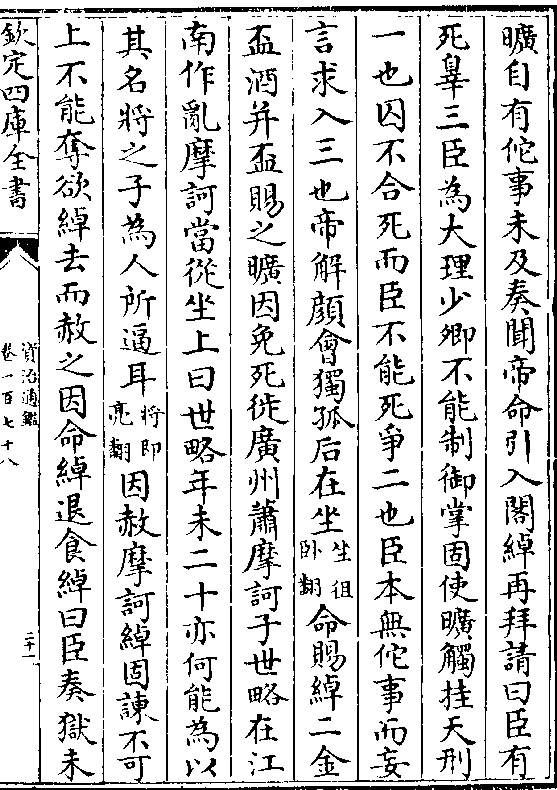 曠自有佗事未及奏聞帝命引入閤綽再拜請曰臣有
死辠三臣為大理少卿不能制御掌固使曠觸挂天刑
一也囚不合死而臣不能死爭二也臣本無佗事而妄
言求入三也帝解顔㑹獨孤后在坐坐徂卧翻命賜綽二金
盃酒并盃賜之曠因免死徙廣州蕭摩訶子世略在江
南作亂摩訶當從坐上曰世略年未二十亦何能為以
其名將之子為人所逼耳將即亮翻因赦摩訶綽固諫不可
上不能奪欲綽去而赦之因命綽退食綽曰臣奏獄未
欽定四庫全書
資治通鑑
卷一百七十八
二十一